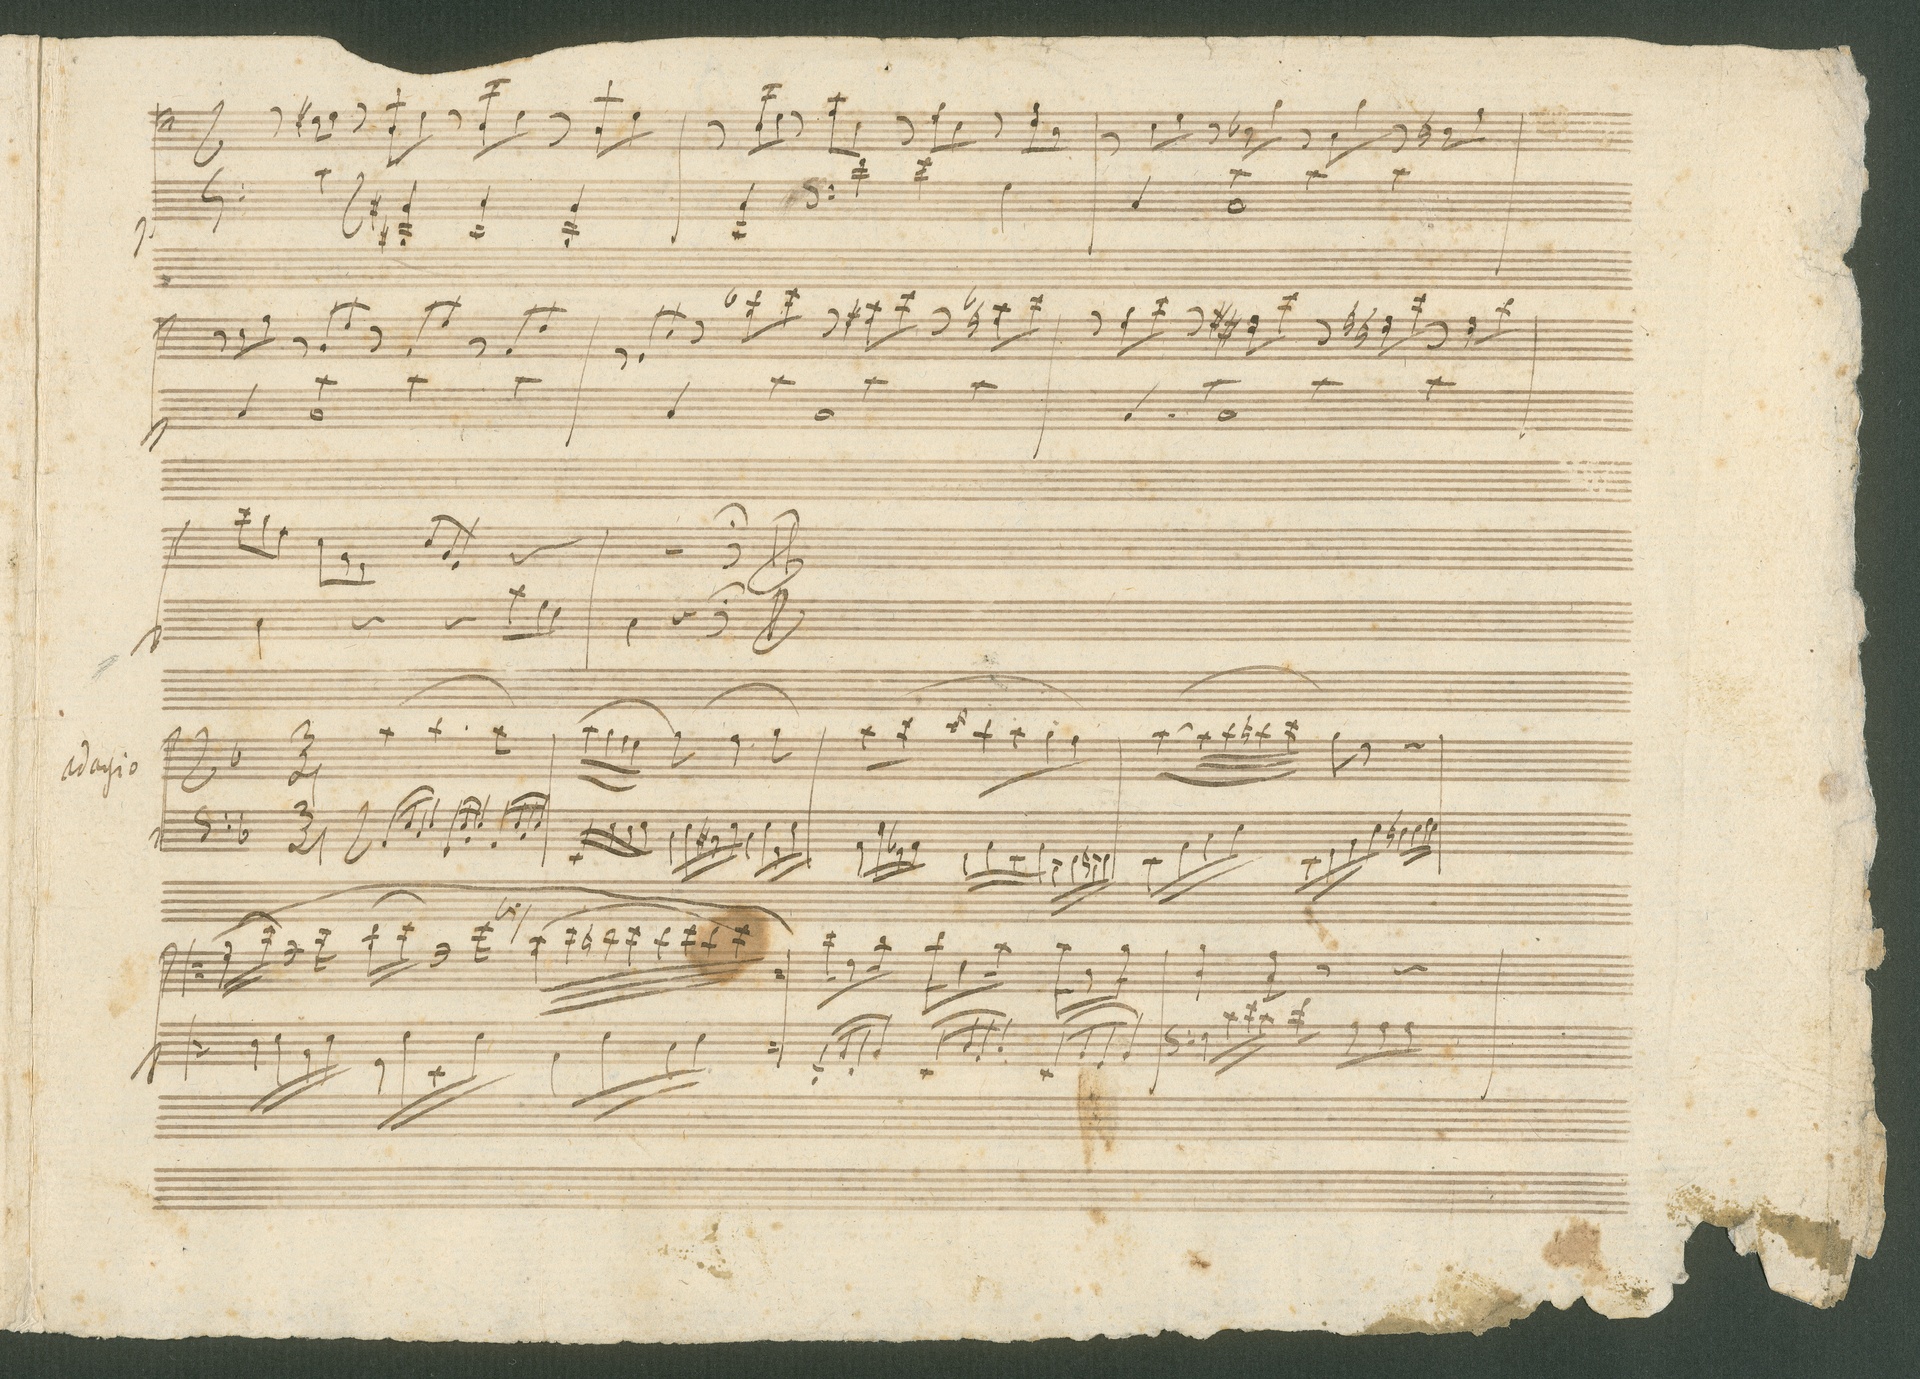 adagio
3
4
3
4